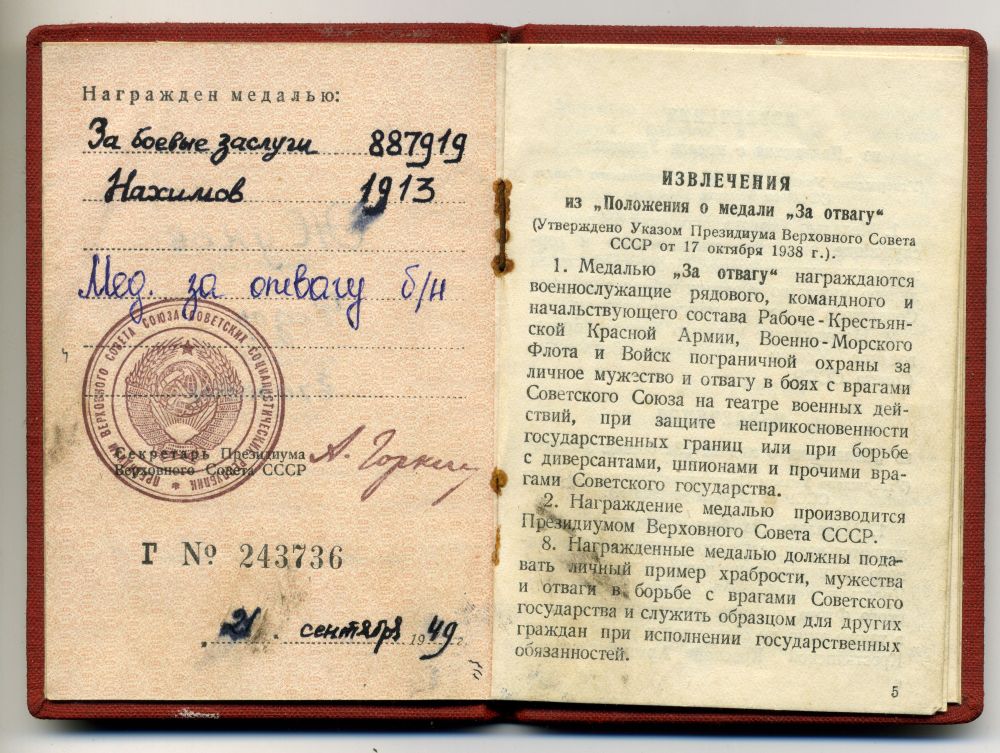 Награжден медалью:
За боевые заслуги 887919
Нахимов 1913
Мед. за отвагу б/н
Секретарь Президиума
Верховного Совета СССР
А. Горкин
Г № 243736
21 сентября 1949 г.
ИЗВЛЕЧЕНИЯ
из „Положения о медали „За отвагу“
(Утверждено Указом Президиума Верховного Совета
СССР от 17 октября 1938 г.).
1. Медалью „За отвагу“ награждаются
военнослужащие рядового, командного и
начальствующего состава Рабоче-Крестьян-
ской Красной Армии, Военно-Морского
Флота и Войск пограничной охраны за
личное мужество и отвагу в боях с врагами
Советского Союза на театре военных дей-
ствий, при защите неприкосновенности
государственных границ или при борьбе
с диверсантами, шпионами и прочими вра-
гами Советского государства.
2. Награждение медалью производится
Президиумом Верховного Совета СССР.
8. Награжденные медалью должны пода-
вать личный пример храбрости, мужества
и отваги в борьбе с врагами Советского
государства и служить образцом для других
граждан при исполнении государственных
обязанностей.
5